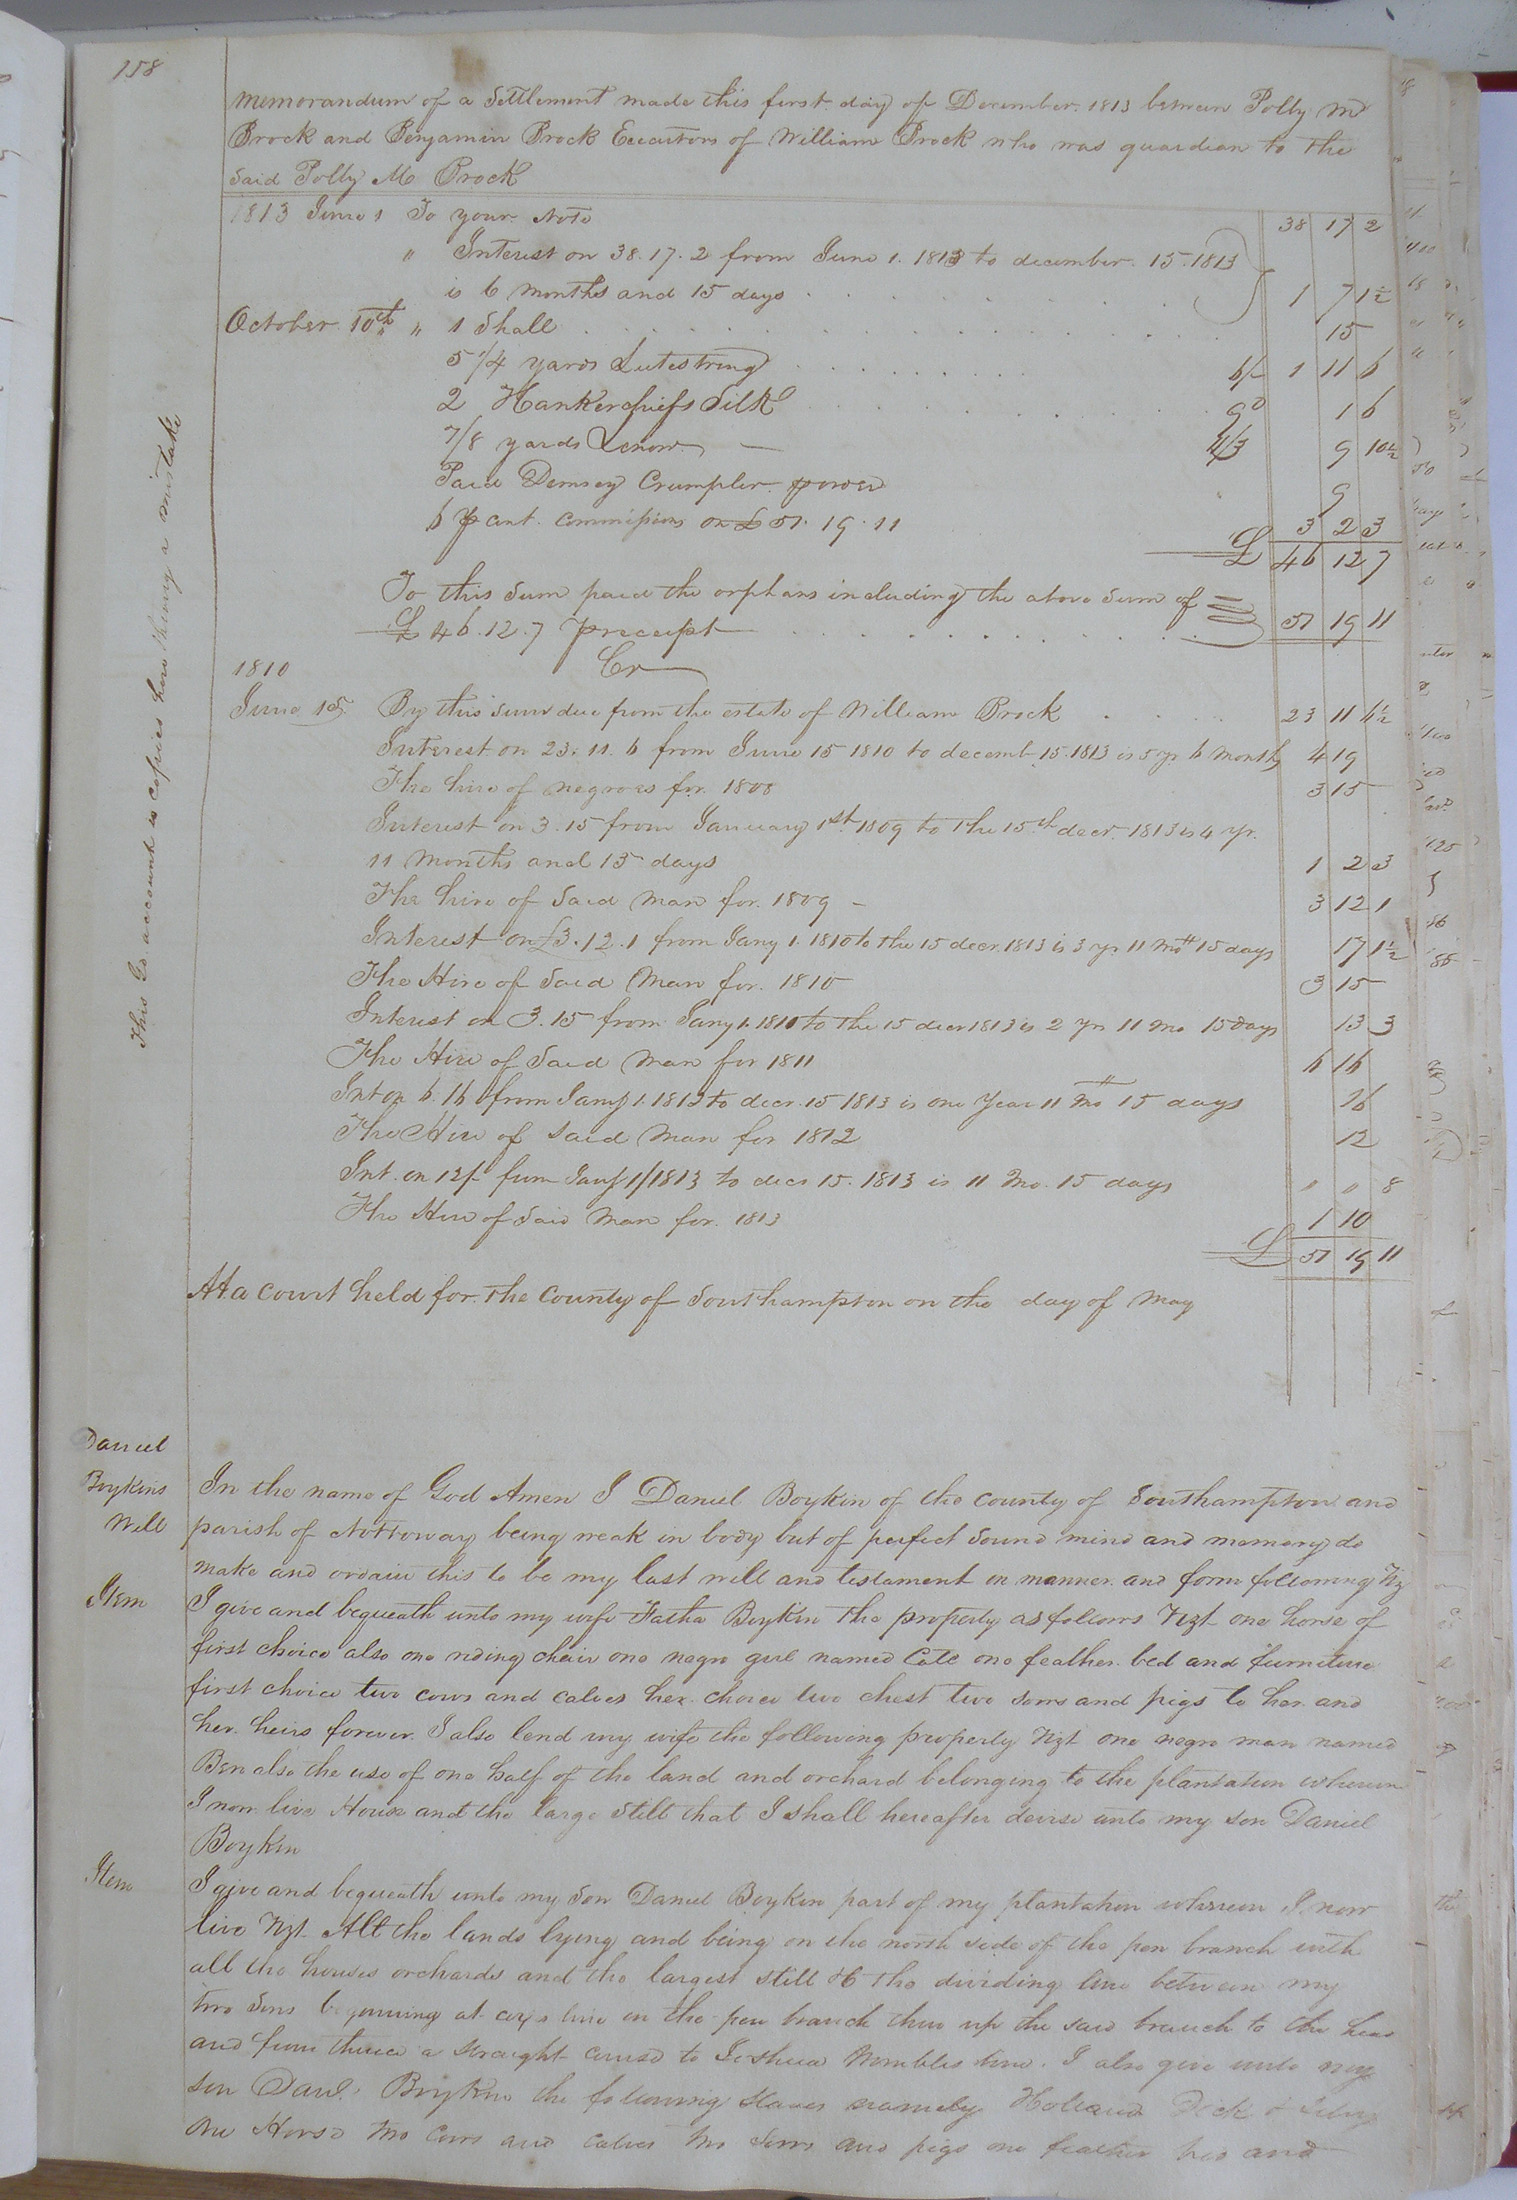 158
Memorandum of a Settlement made this first day of December. 1813 between Polly M
Brock and Benjamin Brock Executors of William Brock who was guardian to the
Said Polly M Brock
1813 June 1 To your Note 38 17 2
" Interest on 38. 17. 2 from June 1. 1813 to december. 15. 1813
is 6 months and 15 days 1 7 1½
October 10th " 1 Shall 15
5 1/4 yards Lutestring 6/- 1 11 6
2 Hankerchiefs Silk 9d 1 6
7/8 yards 11/3 9 10½
Paid Demsey Crumpler 9
6 p cent. commissions on £ 51. 19. 11 3 2 3
£ 46 12 7
To this Sum paid the orphans including the above Sum of
£ 46. 12. 7 p receipt 51 19 11
1810 Cr
June 15. By this sum due from the estate of William Brock 23 11 6½
Interest on 23. 11. 6 from June 15 1810 to decemb 15. 1813 is 3 yr 6 months 4 19
The hire of negroes for 1808 3 15
Interest on 3. 15 from January 1st 1809 to the 15th decr. 1813 is 4 yr.
11 months and 15 days 1 2 3
The hire of Said man for. 1809 - 3 12 1
Interest on £3. 12. 1 from Jany 1. 1810 to the 15 decr. 1813 is 3 yr. 11 mo 15 days 17 1½
The Hire of Said Man for. 1810 3 15
Interest on 3. 15 from Jany 1. 1811 to the 15 decr 1813 is 2 yr 11 mo 15 days 13 3
The Hire of Said Man for 1811 6 16
Int on 6. 16 from Jany 1. 1812 to decr. 15 1813 is one Year 11 mo 15 days 16
The Hire of Said Man for 1812 12
Int. on 12/- from Jany 1/1813 to decr 15. 1813 is 11 Mo. 15 days " " 8
The Hire of Said Man for. 1813 1 10
£ 51 19 11
This account is copied here theirug a mistake
At a Court held for the County of Southampton on the day of May
Daniel
Boykins
Will
In the name of God Amen I Daniel Boykin of the county of Southampton and
parish of Nottoway being weak in body but of perfect Sound mind and memory do
make and ordain this to be my last will and testament in manner and form following Viz
Item I give and bequeath unto my wife Fatha Boykin the property as follows Vizt one horse of
first choice also one riding chair one negro girl named Cate one feather bed and furniture
first choice two cows and calves her choice two chest two sows and pigs to her and
her heirs forever. I also lend my wife the following property Vizt one negro man named
Ben also the use of one half of the land and orchard belonging to the plantation whereon
I now live House and the large Still that I shall hereafter devise unto my son Daniel
Boykin
Item I give and bequeath unto my Son Daniel Boykin part of my plantation whereon I now
live Vizt. All the lands lying and being on the north side of the pen branch with
all the houses orchards and the largest still & the dividing line between my
two Sons beginning at line on the pen branch then up the said branch to the head
and from thence a straight course to Joshua Nembles line. I also give unto my
son Danl. Boykin the following slaves namely Holland Dick &
One Horse two Cows and calves two Sows and pigs one feather bed and